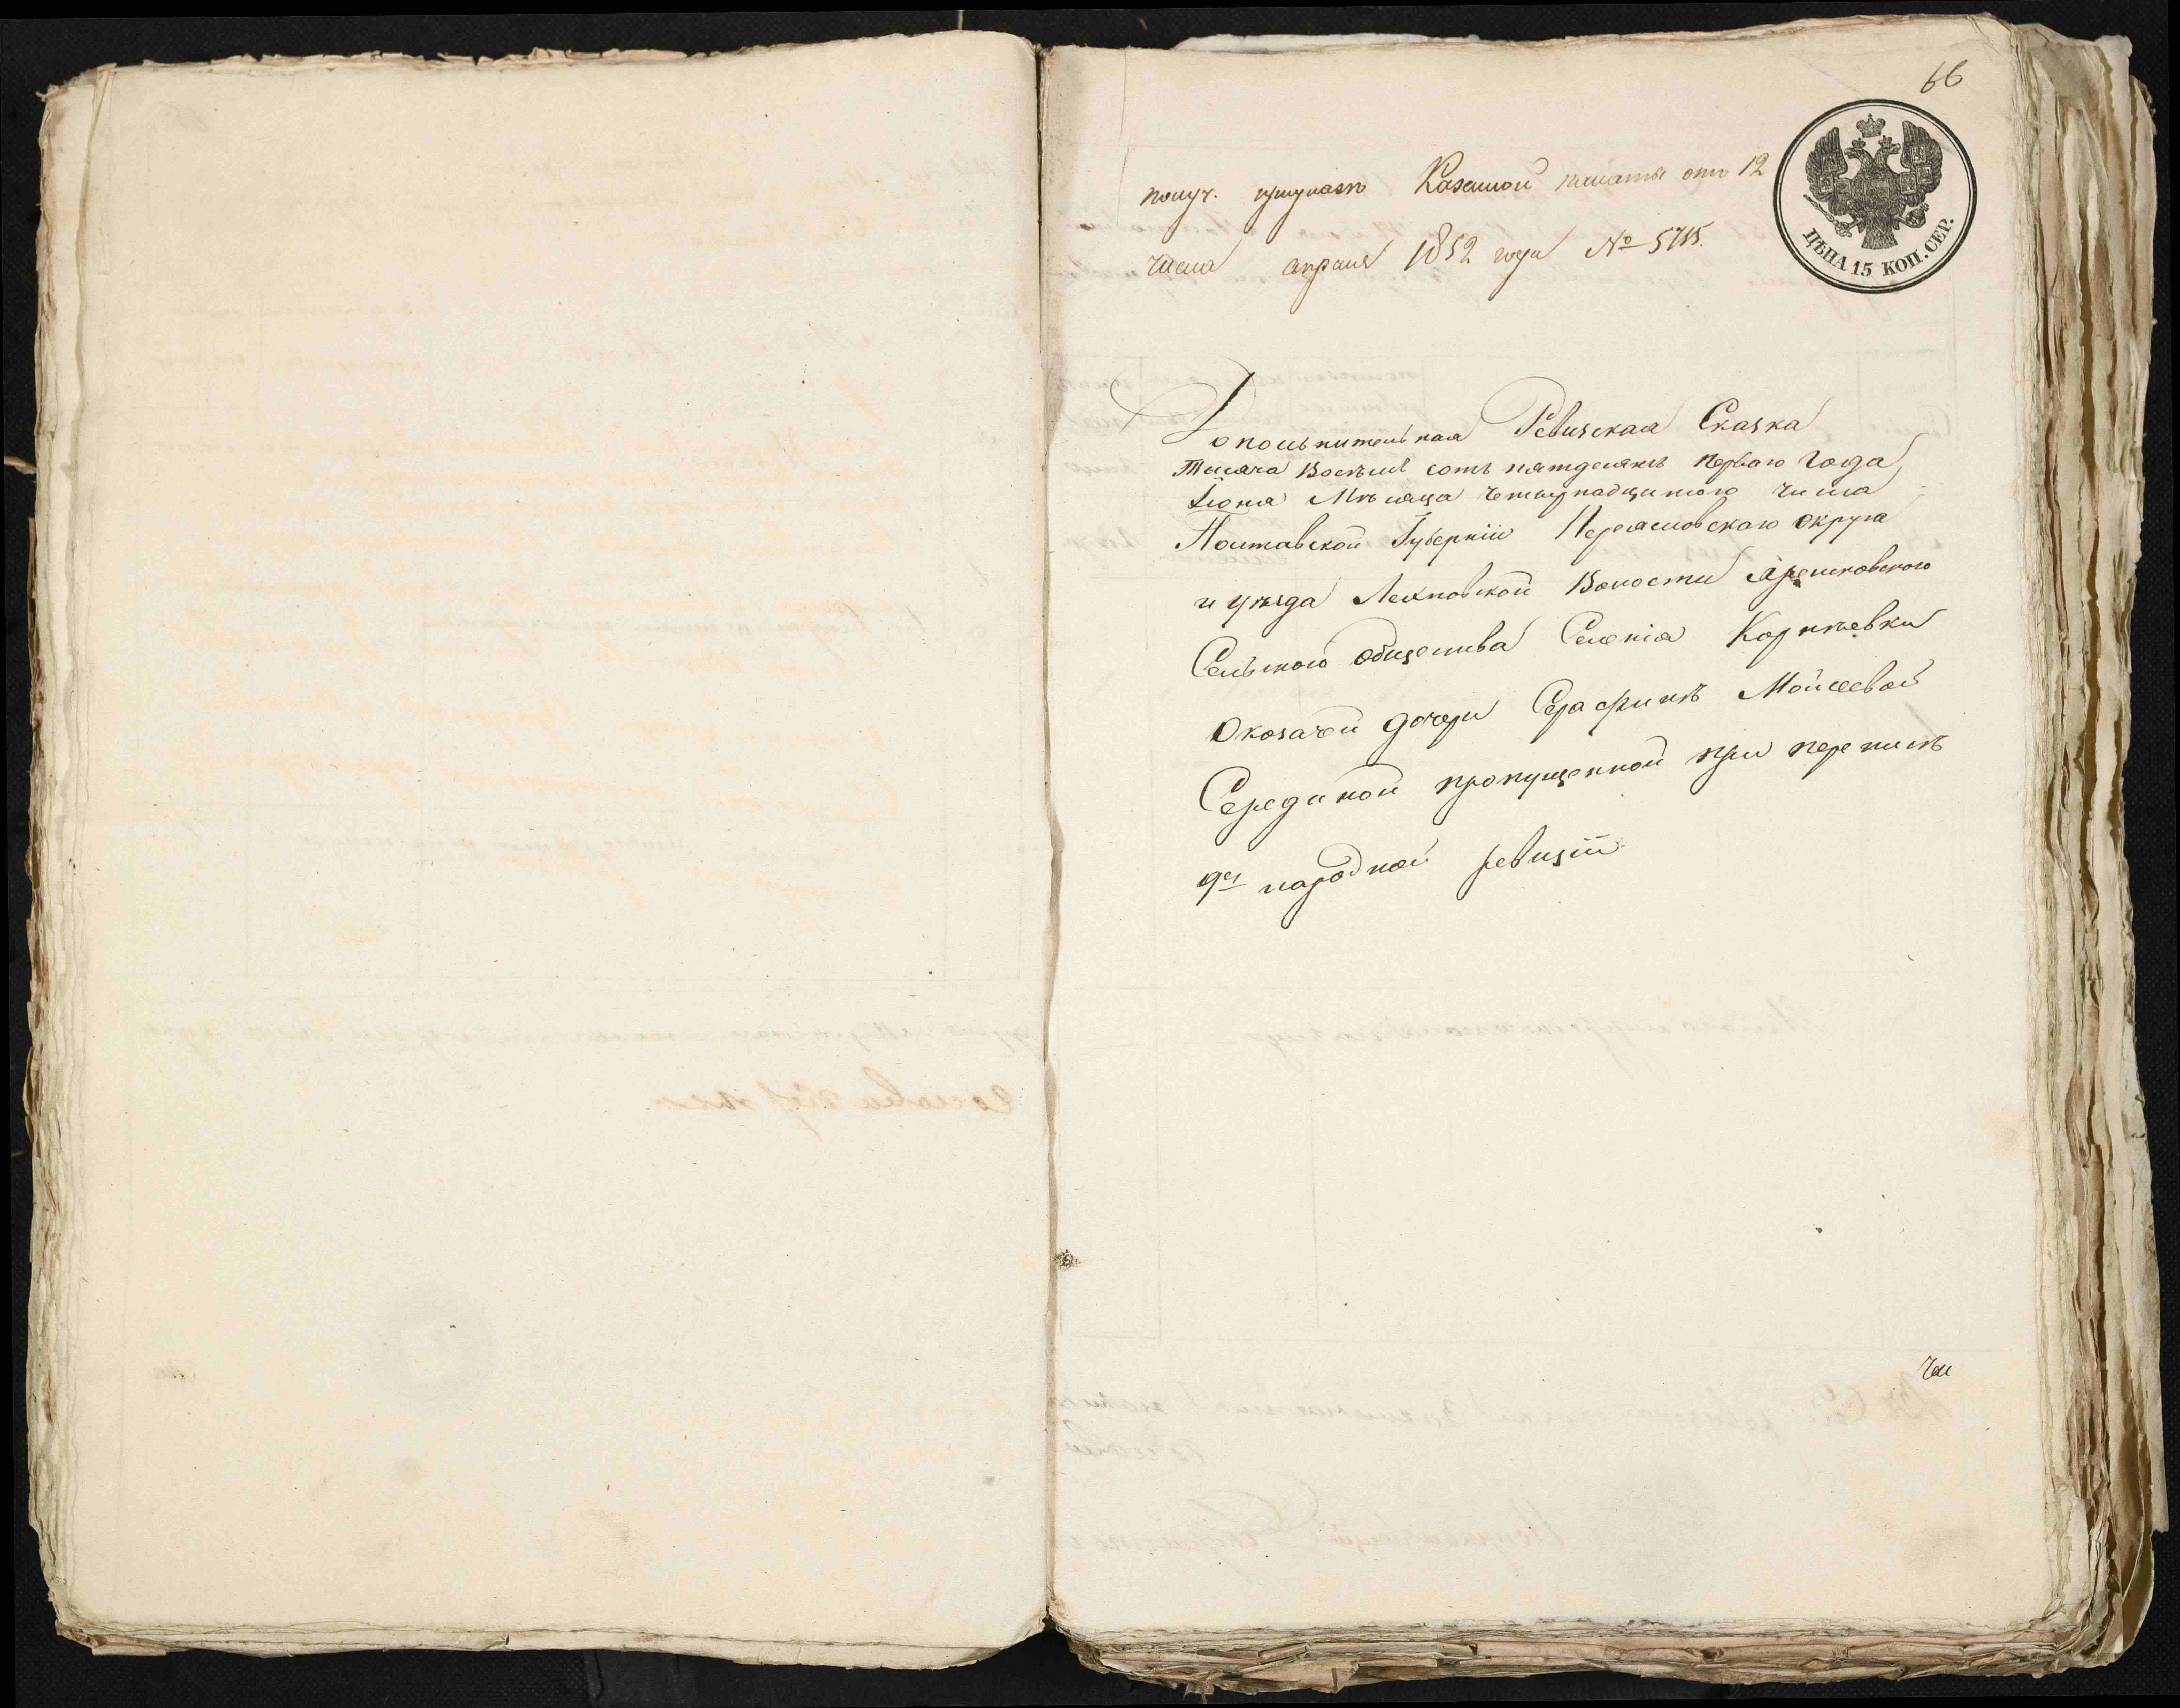 66
получ. при указе Казенной палаты от 12
ЦѢНА 15 КОП. СЕР.
числа апреля 1852 года № 5715.
Дополнительная Ревизская Сказка
Тысяча восемь сотъ пятдесятъ перваго Года,
Іюня Мѣсяца четырнадцатого числа
Полтавской Губерніи Переясловскаго округа
и уѣзда Лехновской Волости
Сельского общества Селенія Корнѣевки
О козачей дочери Серафимѣ Мойсеевой
Серединой пропущенной при переписѣ
9й народной ревизіи